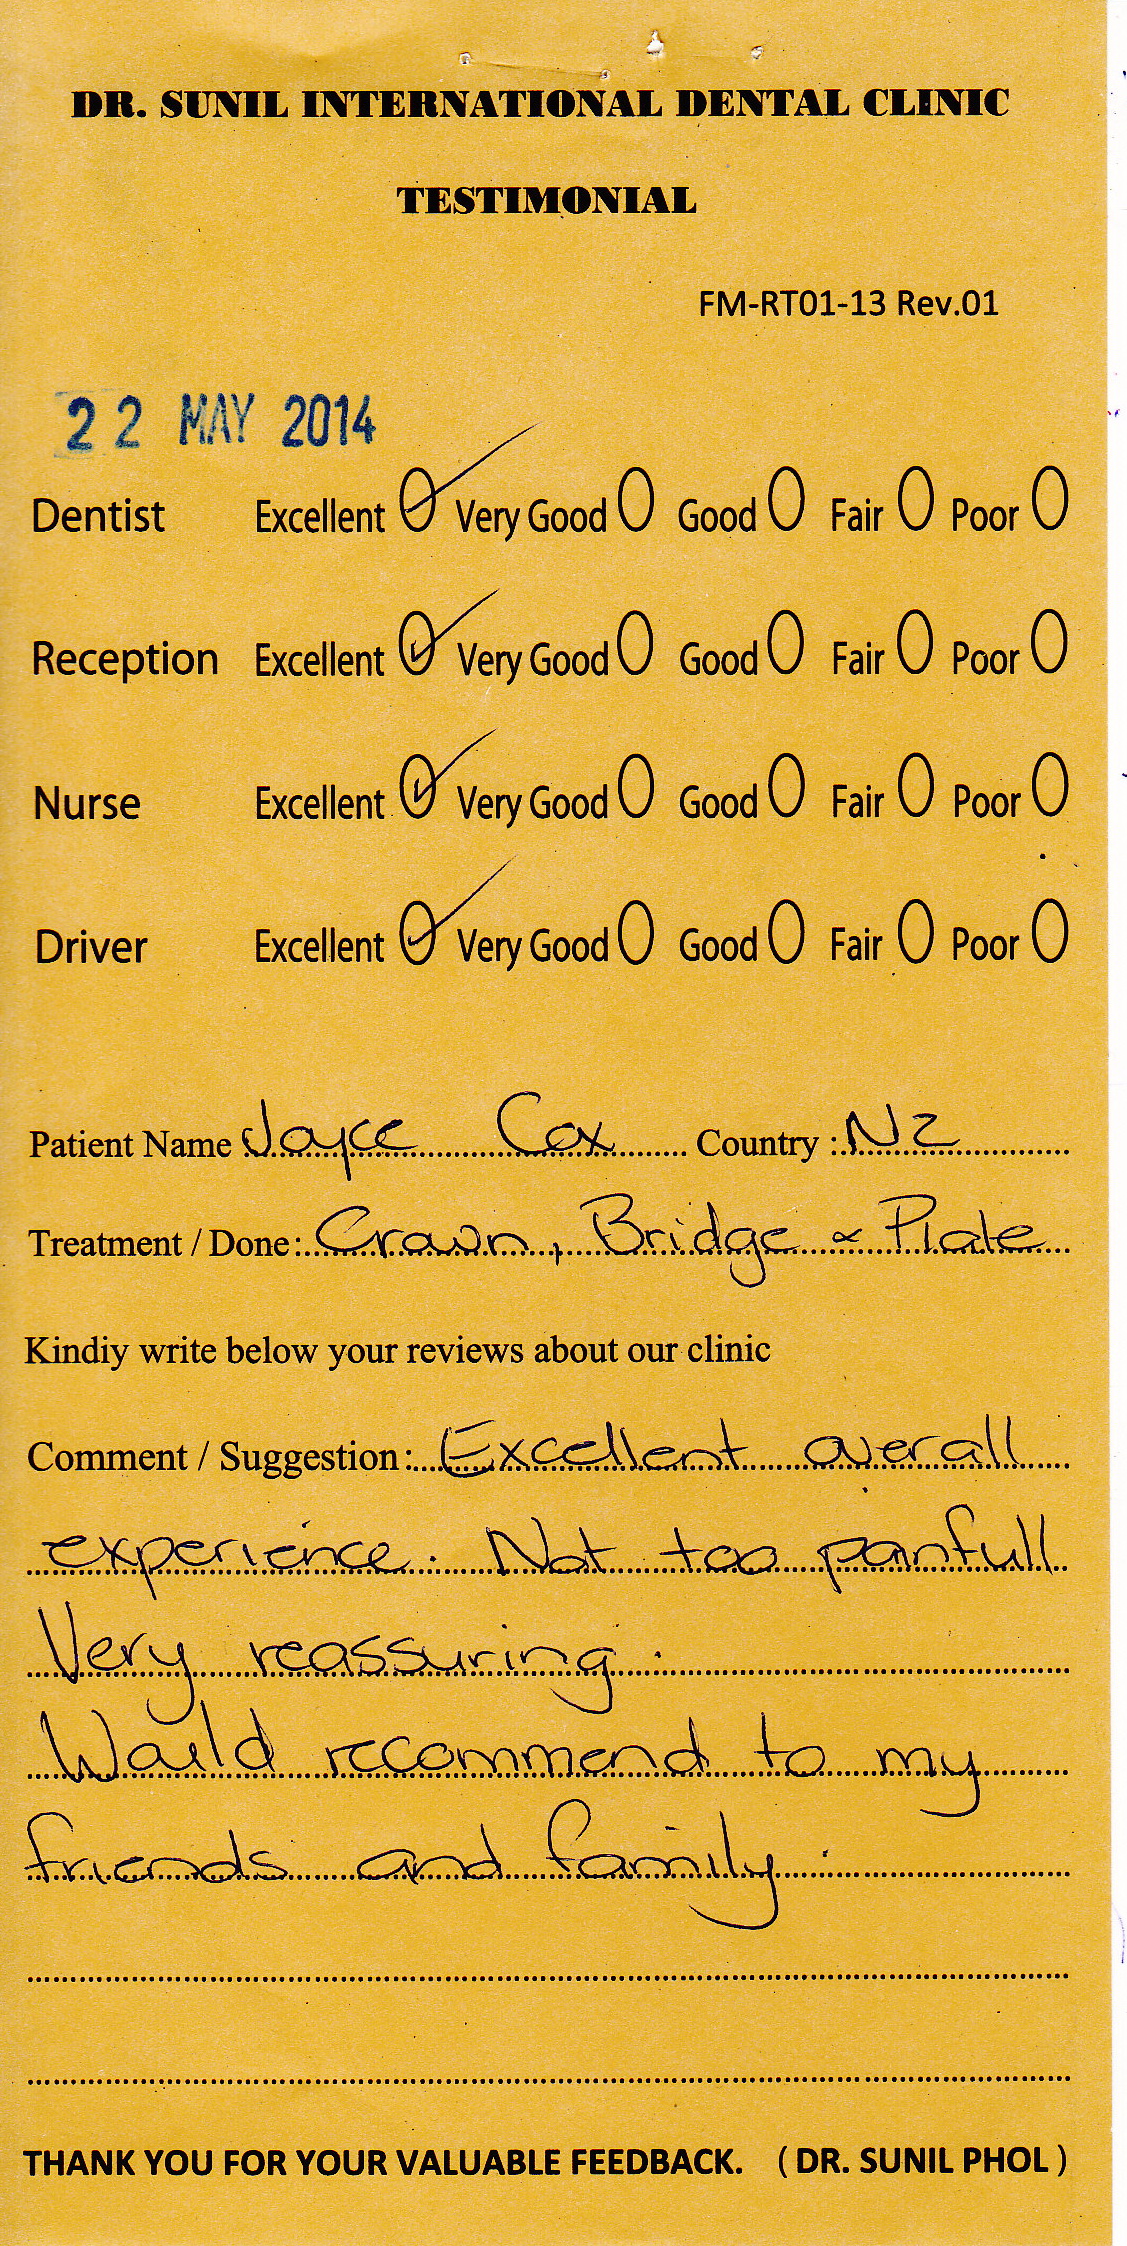 DR. SUNIL INTERNATIONAL DENTAL CLINIC
TESTIMONIAL
FM-RT01-13 Rev.01
22 MAY 2014
Dentist Excellent Very Good Good Fair Poor
Reception Excellent Very Good Good Fair Poor
Nurse Excellent Very Good Good Fair Poor
Driver Excellent Very Good Good Fair Poor
Patient Name Joyce Cox Country : NZ
Treatment / Done: Crown, Bridge & Plate
Kindiy write below your reviews about our clinic
Comment / Suggestion: Excellent overall
experience. Not too painfull
Very reassuring.
Would recommend to my
friends and family.
THANK YOU FOR YOUR VALUABLE FEEDBACK. ( DR. SUNIL PHOL )